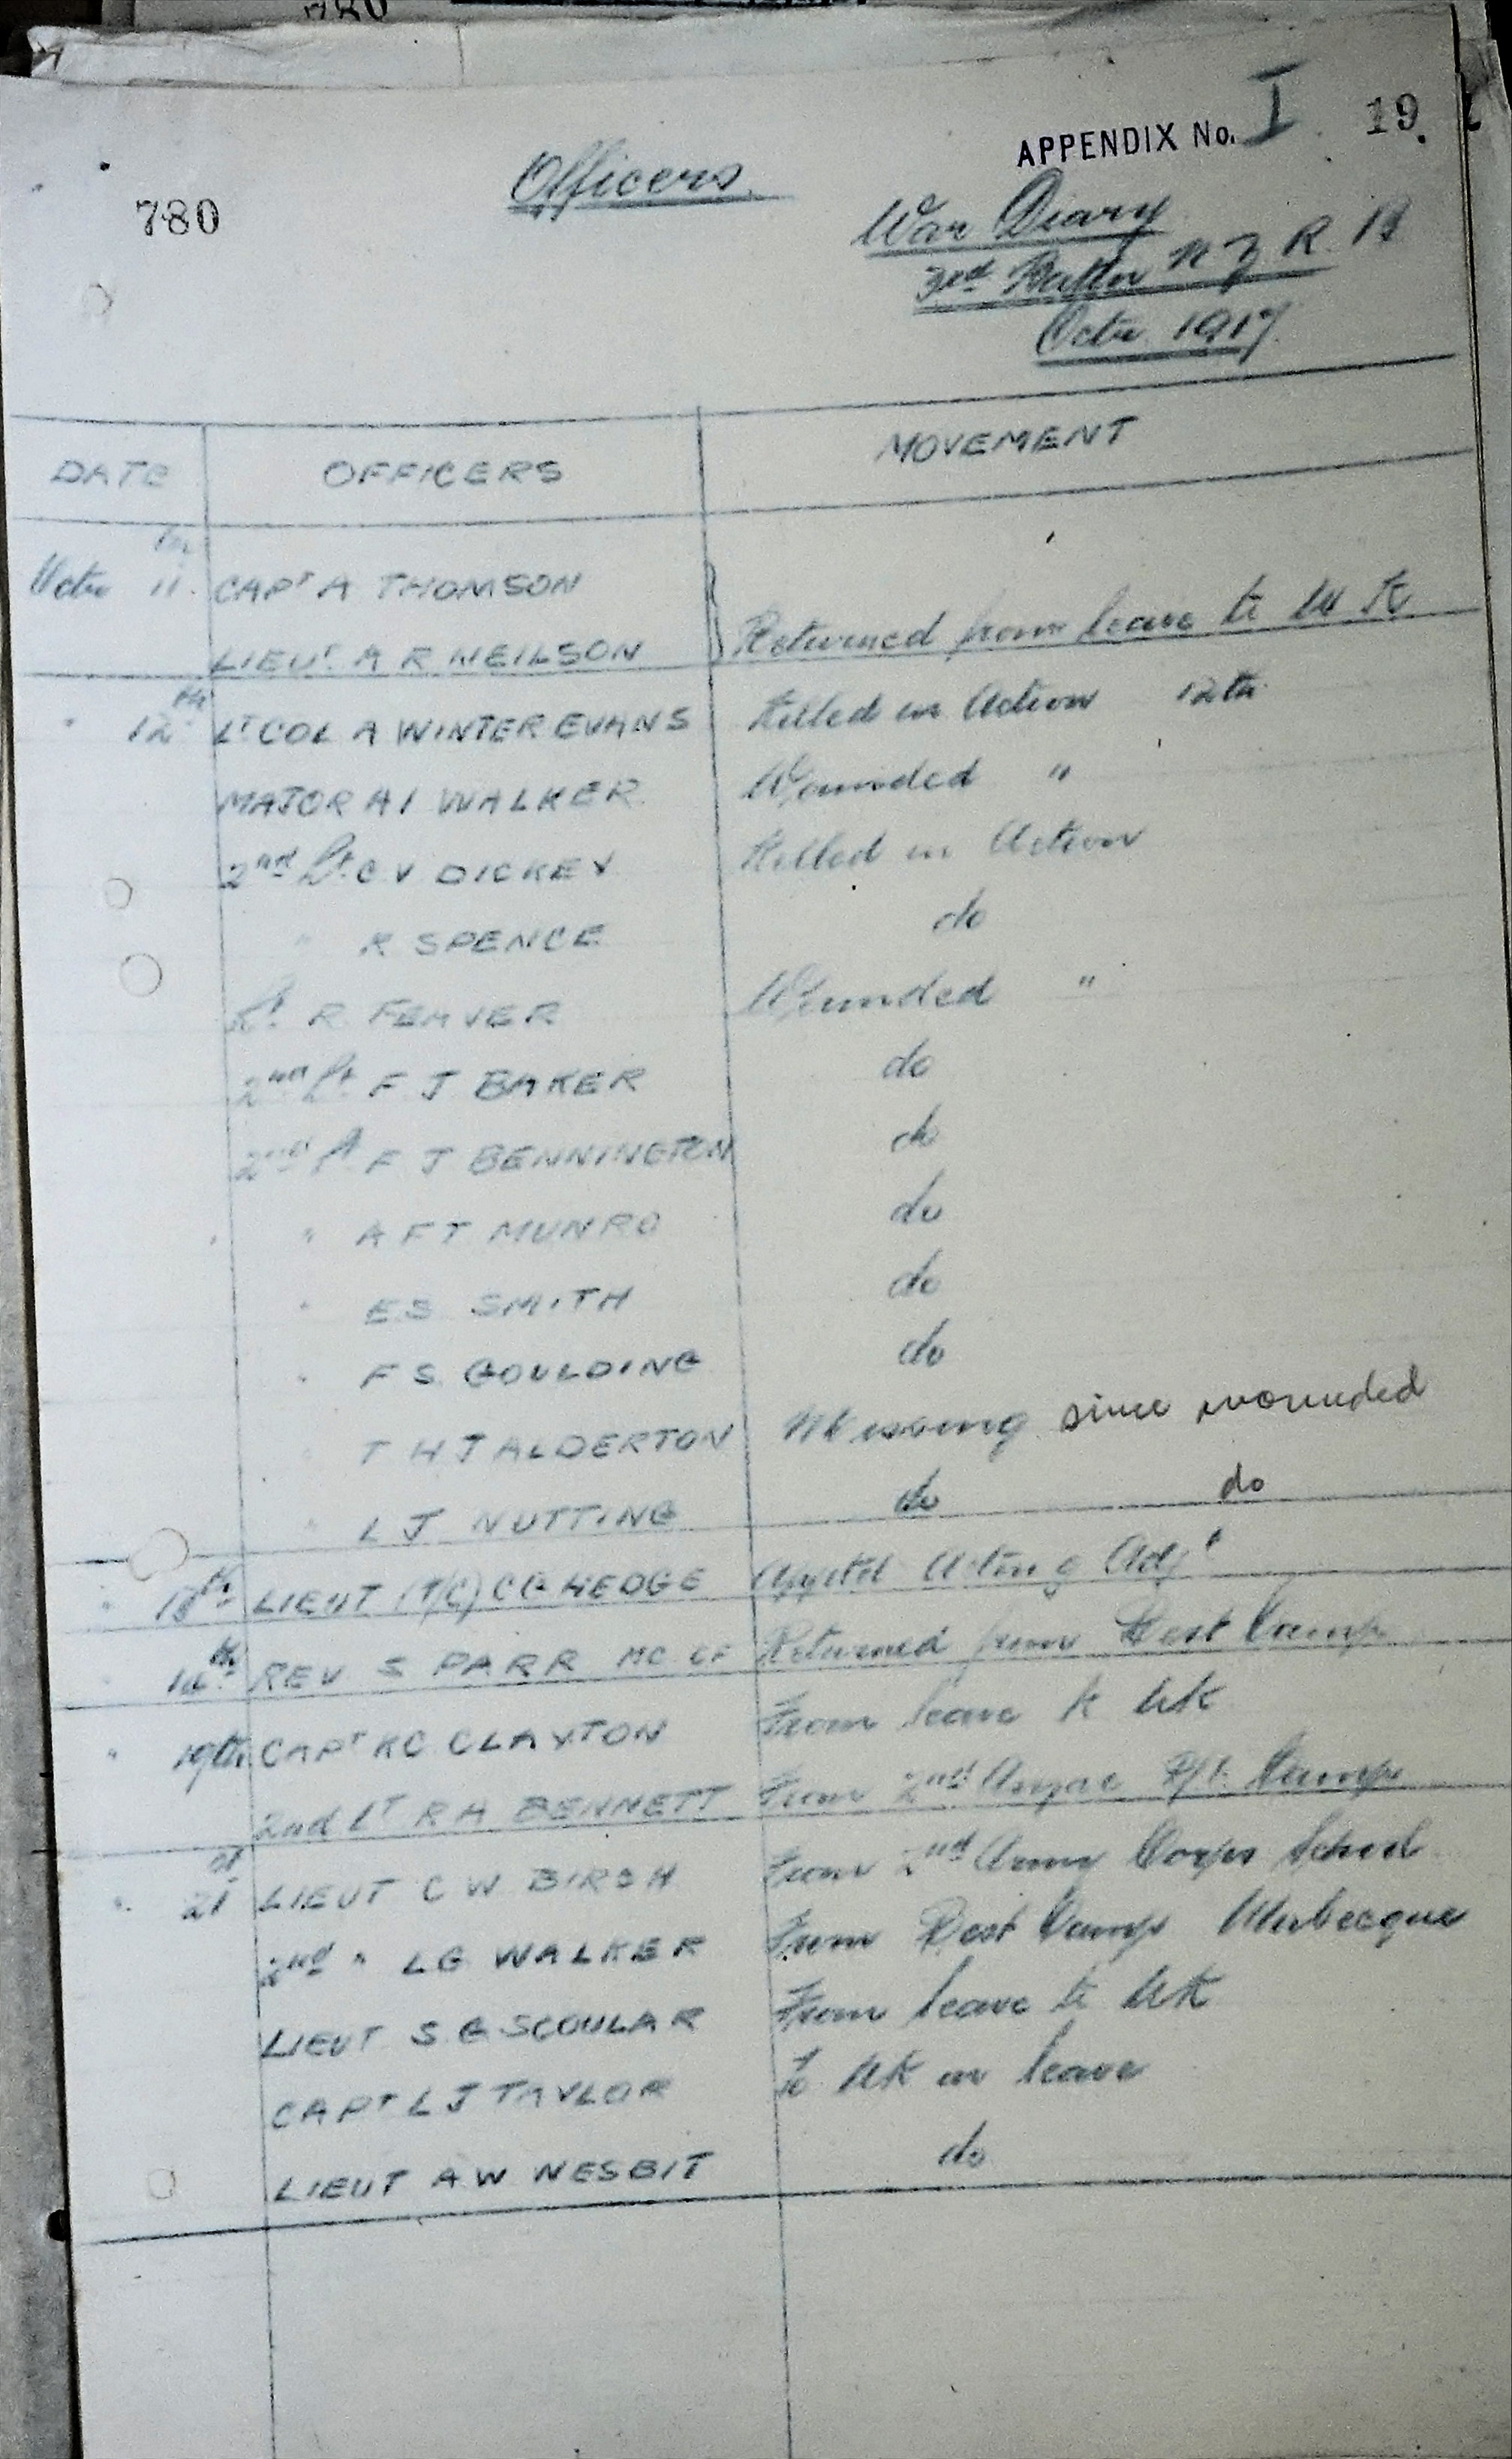 780
APPENDIX No. I 19.
Officers
780
War Diary
3rd Battn N Z R B
Octr. 1917
DATE OFFICERS MOVEMENT
Octr 11th CAPT A THOMSON
LIEUT. A R NEILSON Returned from leave to U K
" 12th LT COL A WINTER EVANS Killed in Action 12th
MAJOR A I WALKER Wounded "
2nd Lt. C V DICKEY Killed in Action
" R SPENCE do
Lt. R. Wounded "
2nd Lt. F J BAKER do
2nd Lt F J BENNINGTON do
" A F T MUNRO do
" E S SMITH do
" F S GOULDING do
" T H J ALDERTON Missing since wounded
" L J NUTTING do do
" LIEUT (T/C) C G HEDGE Apptd Acting Adjt
" REV S PARR MC CF Returned from Rest Camp
" 19th CAPT K C CLAYTON From leave to UK
2nd LT R A BENNETT From 2nd Anzac Camp
" 21st LIEUT C W BIRCH From 2nd Army Corps School
2nd " L G WALKER From Rest Camp
LIEUT S G SCOULAR From leave to UK
CAPT L J TAYLOR To UK on leave
LIEUT A W NESBIT do